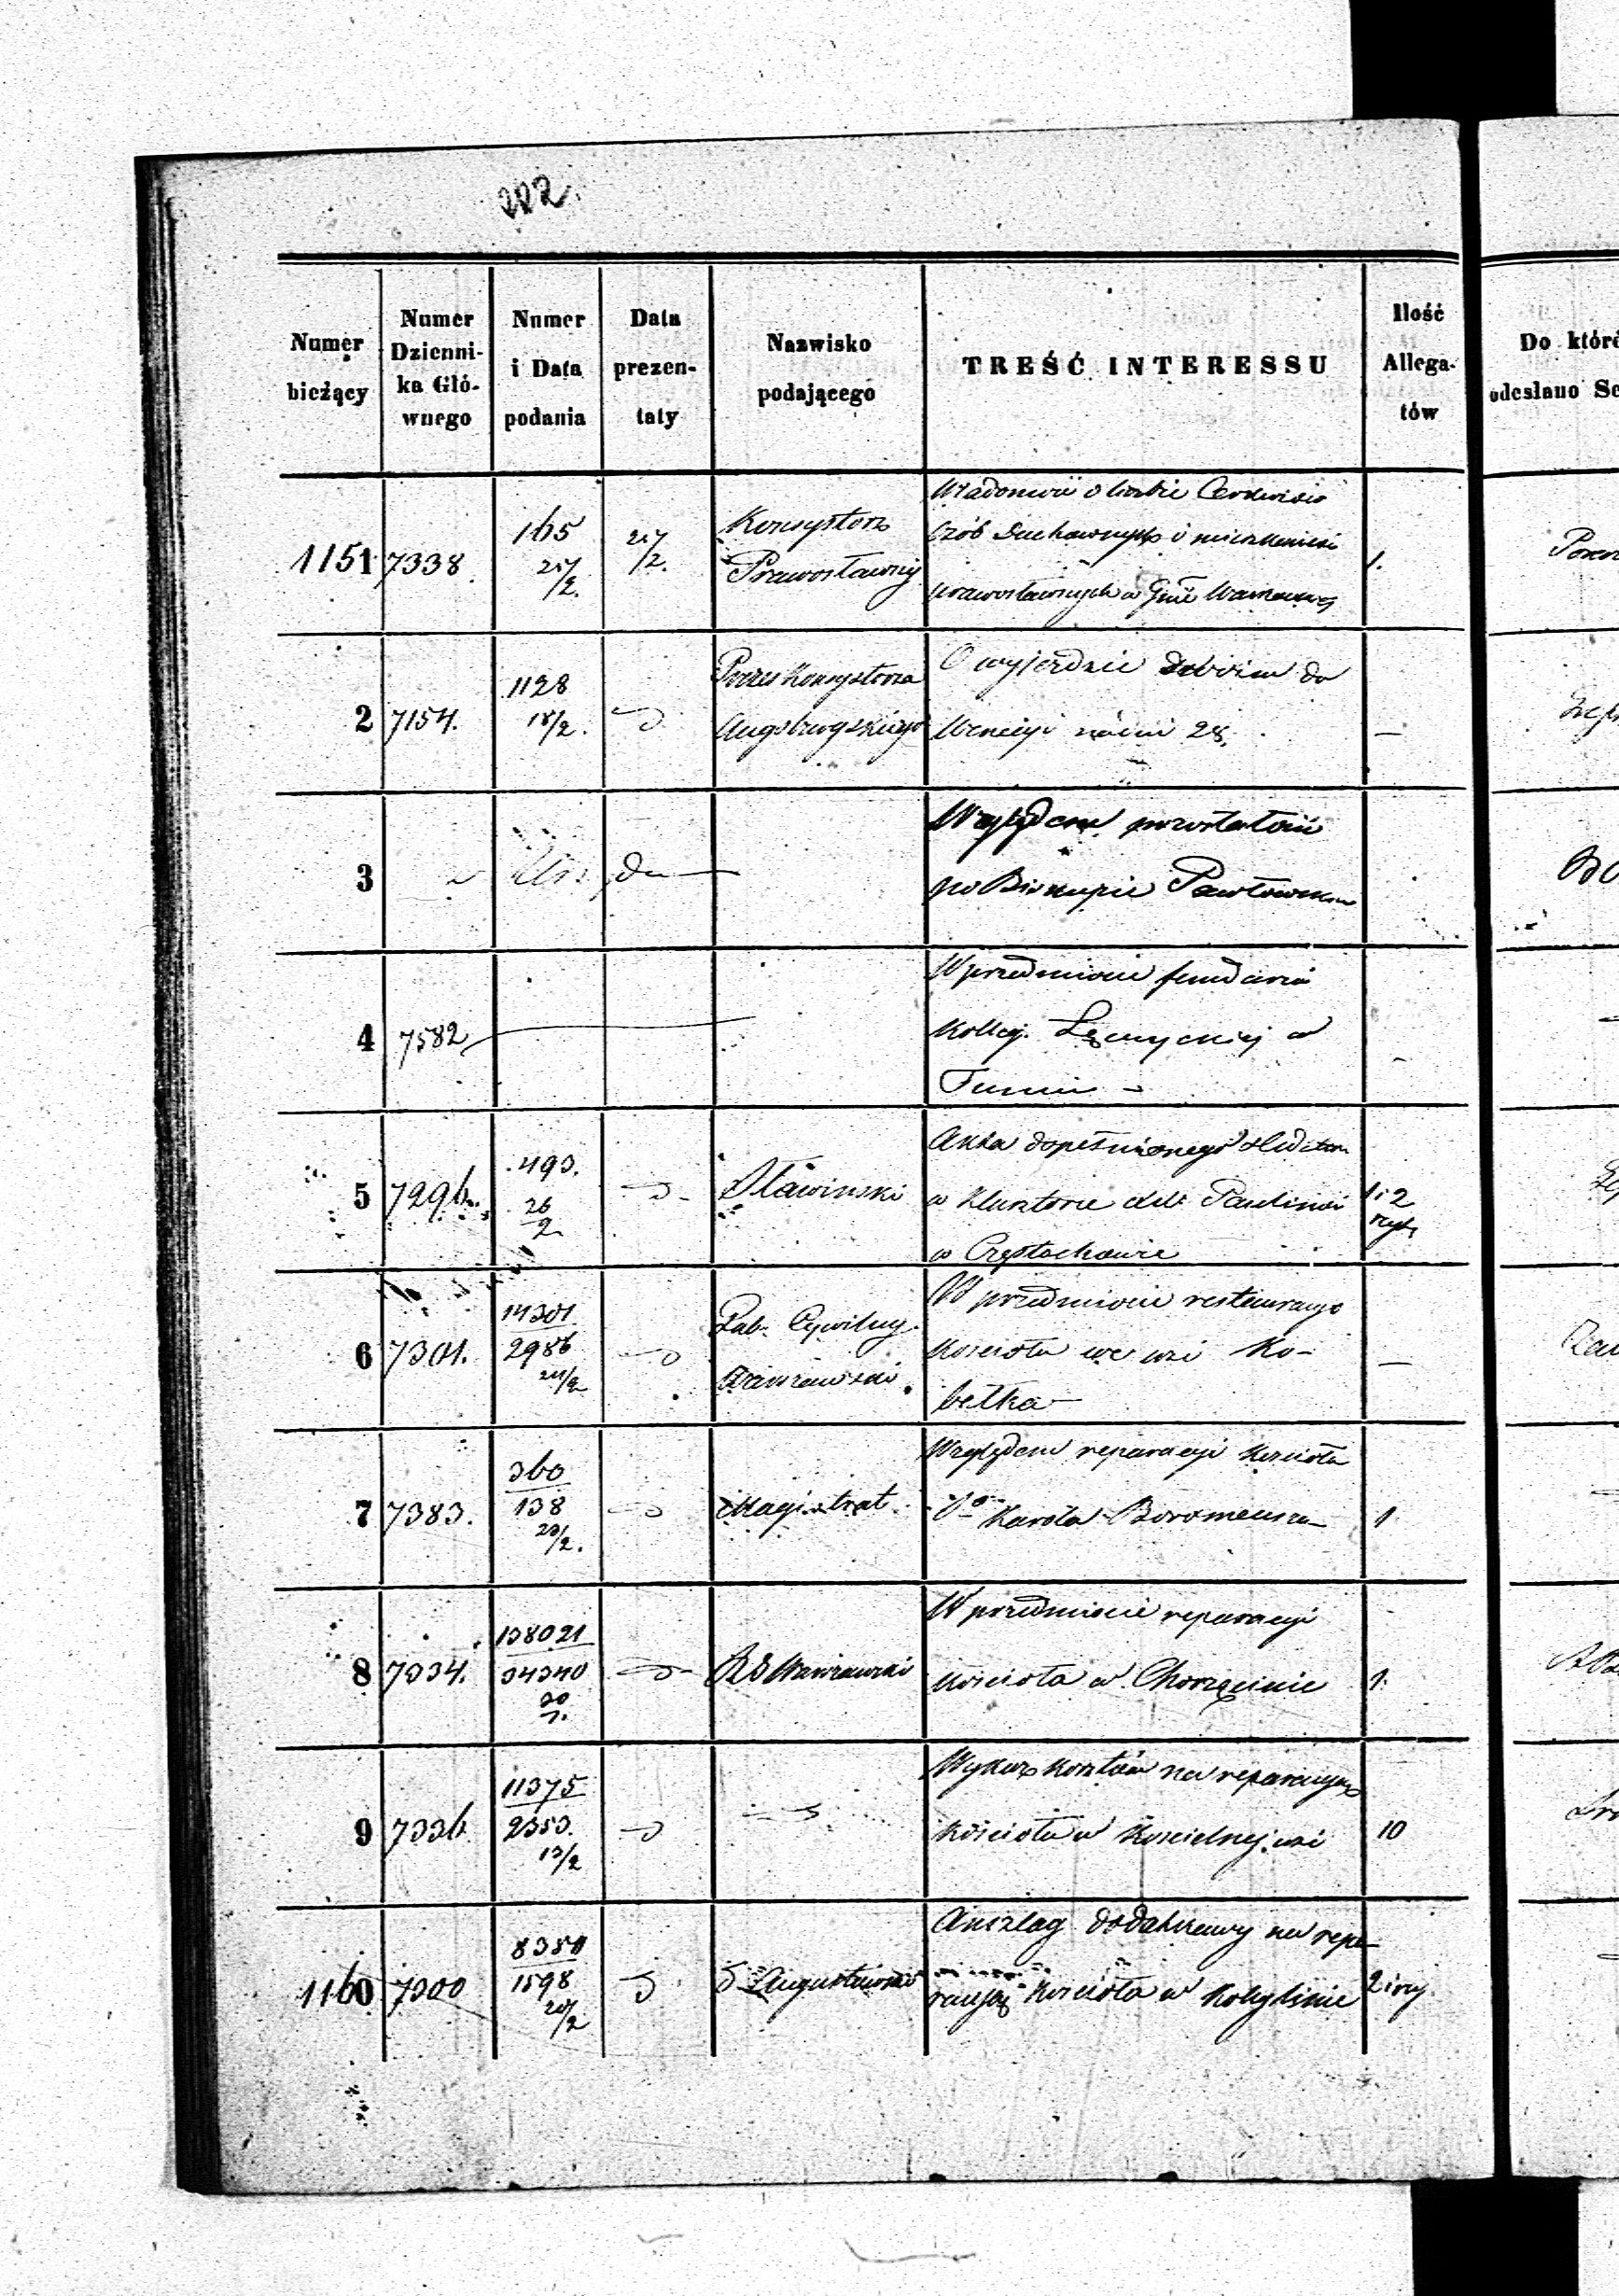 202.
Numer bieżący
Numer Dzienni-ka Głó-wnego
Numer i Data podania
Data prezen-taty
Nazwisko podającego
TREŚĆ INTERESSU
Ilość Allega-tów
Do któr
odesłano Se
1151 7338 165 27/2. 27/2. Konsystorz Prawosławny
Osób Duchownych i
prawosławnych w Gub Warszawsk
1.
2 7154. 1128 18/2. Prezes Konsystorza Augsburgskiego
O wyjeździe do
28.
—
3
Względem pozostałości
po Biskupie Pawłowskim
4 7582
W przedmiocie funduszu
Kolleg. Łęczyckiej w
Tumie –
5 7296. 493. 26/2 Sławinski
Akta dopełnionego
w Klasztorze Paulinów
w Częstochowie
1 i 2
6 7301. 14301 2986 24/2 Gub. Cywilny Warszawski.
W przedmiocie restauracyi
Kościoła we wsi Ko-
bełka –
—
7 7383. 360 138 23/2. Magistrat
Względem reparacyi Kościoła
Sgo Karola Boromeusza –
1
8 7334. 138021 34340 30/7. RG Warszawski
W przedmiocie reparacyi
Kościoła w Chorzęcinie
1.
9 7336 11375 2353. 13/2
Wykaz kosztów na reparacyą
Kościoła w Kościelnej wsi
10
1160 7300 8350 1598 20/2 Augustowski
Anszlag dodatkowy na repa-
racyą Kościoła w
2 i ry